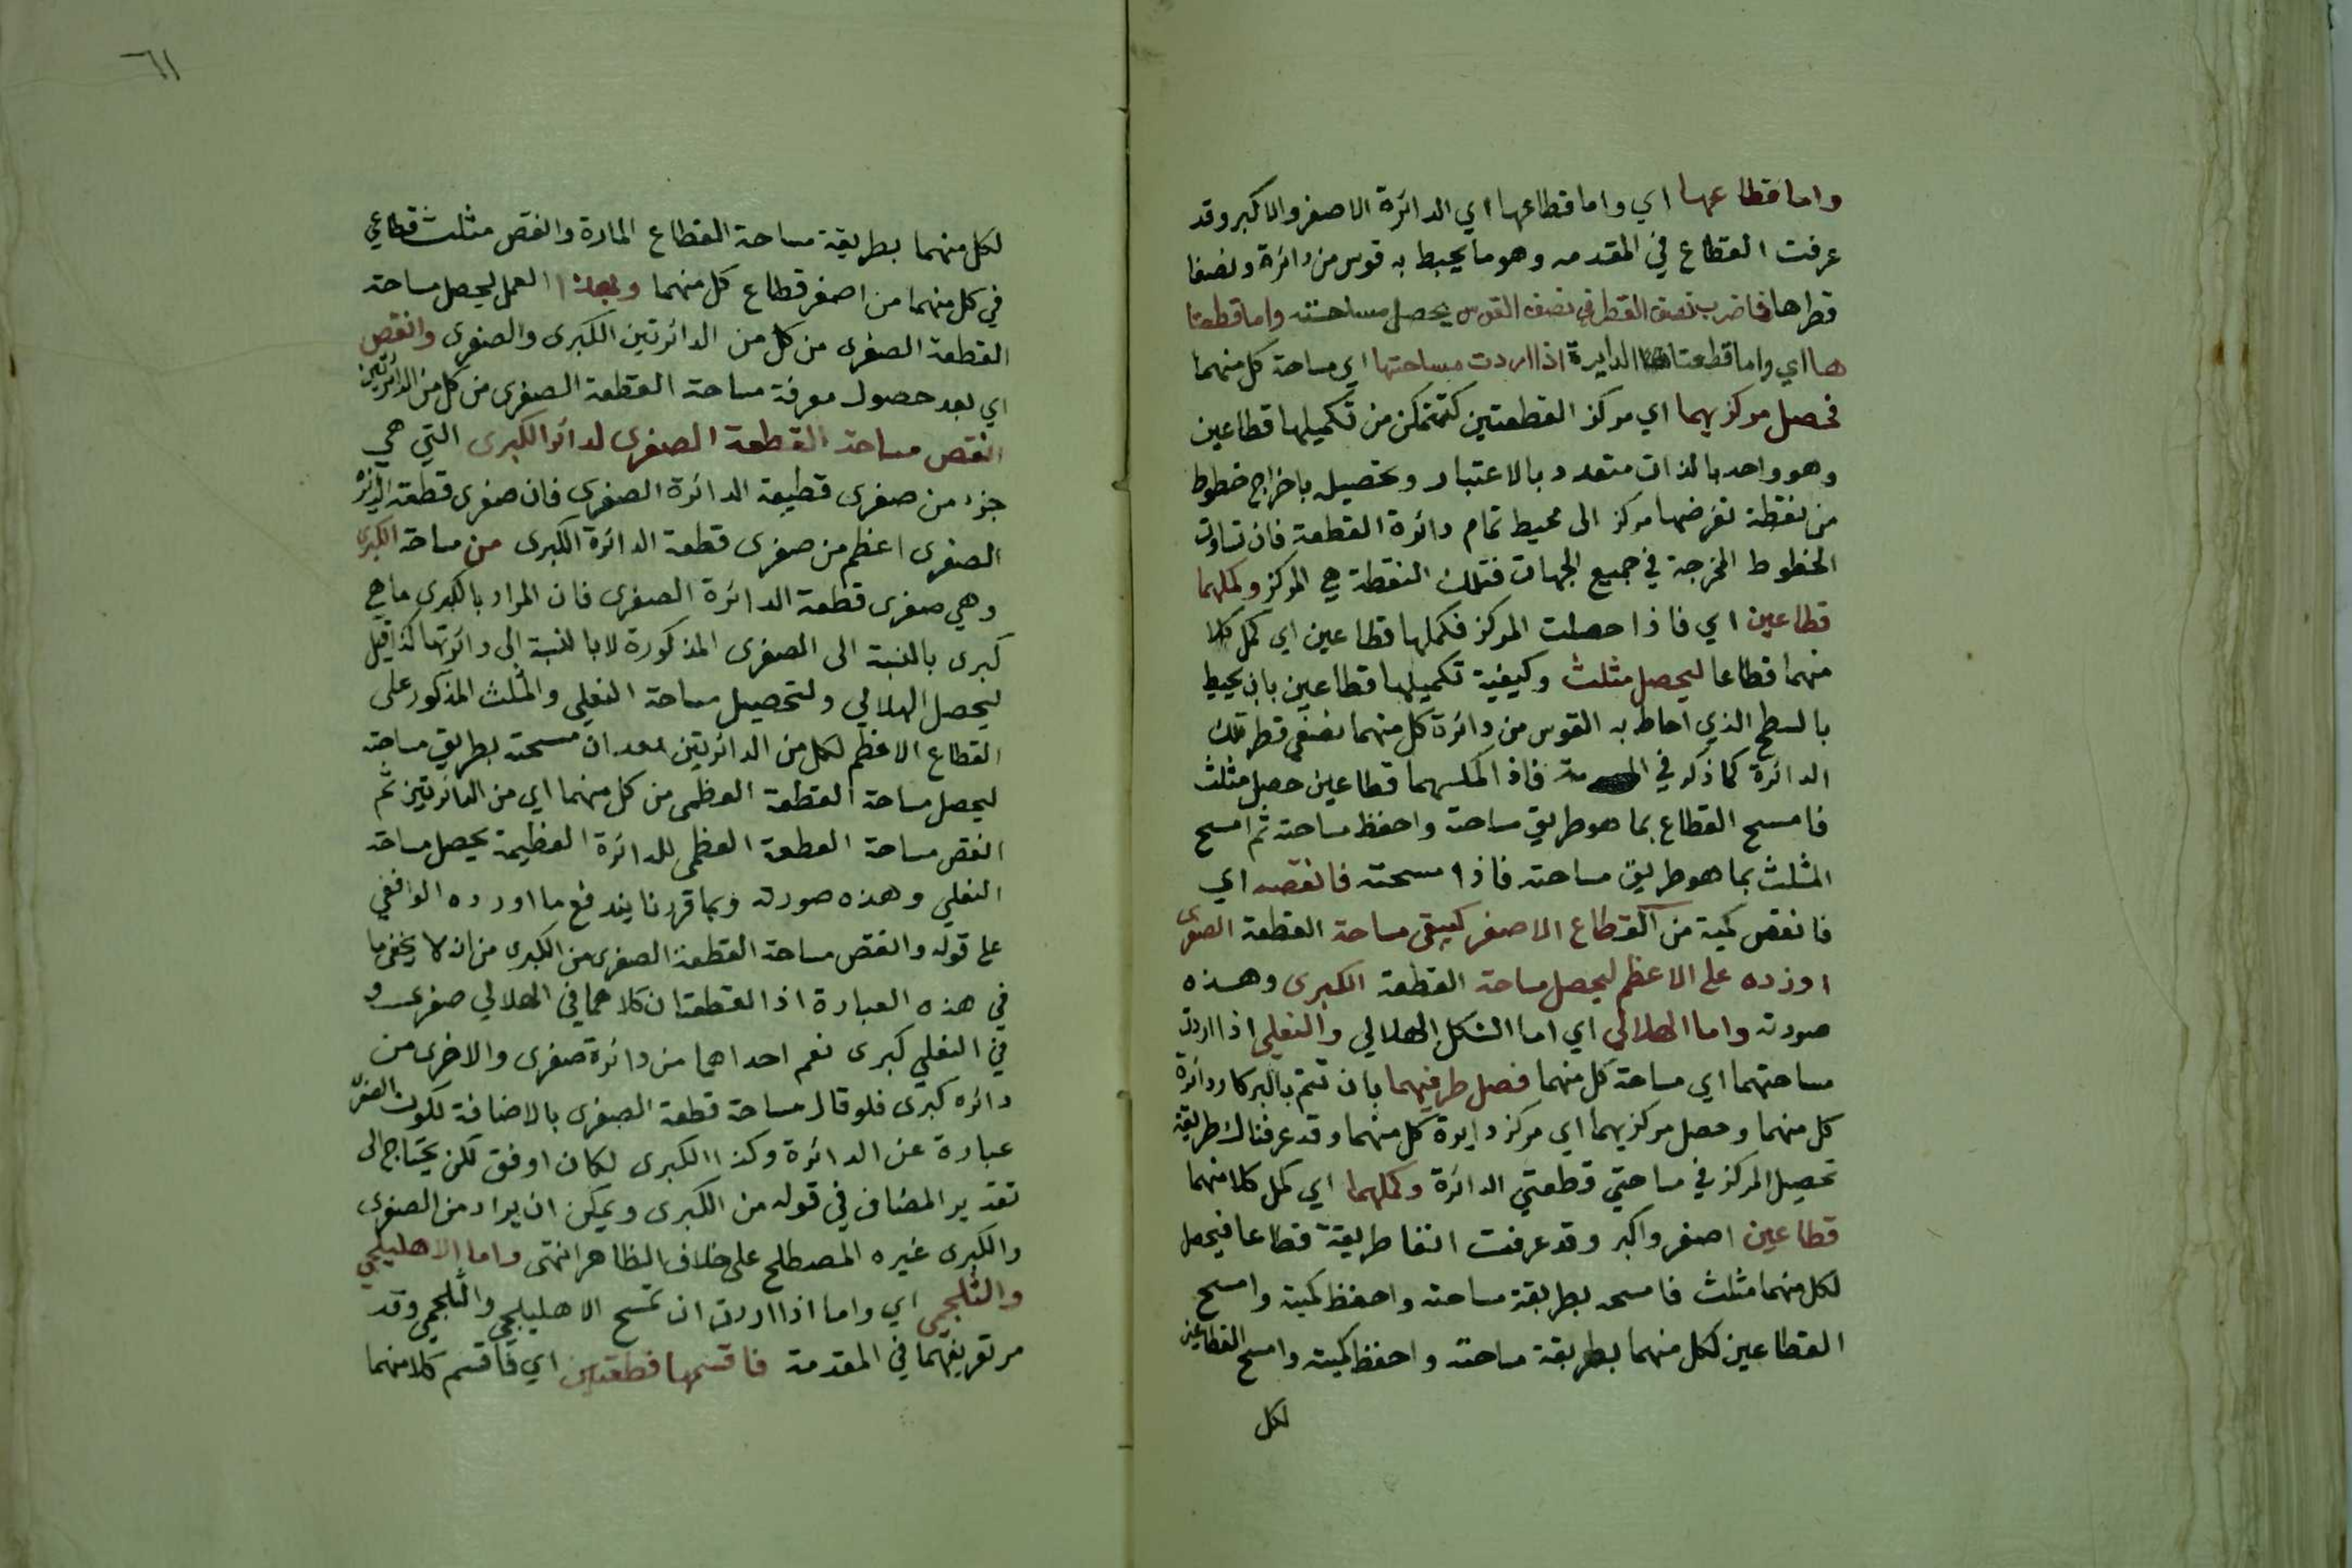 واما قطاعها اي واما قطاعها اي الدائرة الاصغر والاكبر وقد
عرفت القطاع في المقدمه وهو ما يحيط به قوس من دائرة ونصفا
قطرها فاضرب نصف القطر في نصف القوس يحصل مساحته واما قطعتا
ها اي واما قطعتا الدايرة اذا اردت مساحتها اي مساحة كل منهما
فحصل مركزيهما اي مركز القطعتين كتتمكن من تكميلها قطاعين
وهو واحد بالذات متعدد بالاعتبار وتحصيله باخراج خطوط
من نقطة تفرضها مركز الى محيط تمام دائرة القطعة فان تساوت
الخطوط المخرجة في جميع الجهات فتلك النقطة هي المركز وكملهما
قطاعين اي فاذا حصلت المركز فكملها قطاعين اي كمل كلا
منهما قطاعا ليحصل مثلث وكيفية تكميلها قطاعين بان يحيط
بالسطح الذي احاط به القوس من دائرة كل منهما نصفي قطر تلك
الدائرة كما ذكر في فاذا اكملتهما قطاعين حصل مثلث
فامسح القطاع بما هو طريق مساحته واحفظ مساحته ثم امسح
المثلث بما هو طريق مساحته فاذا مسحته فانقصه اي
فانقص كميته من القطاع الاصغر ليبقى مساحة القطعة الصغرى
اوزده على الاعظم ليحصل مساحة القطعة الكبرى وهذه
صورته واما الهلالي اي اما الشكل الهلالي والنعلي اذا اردت
مساحتهما اي مساحة كل منهما فصل طرفيهما بان تتم بالبركار دائرة
كل منهما وحصل مركزيهما اي مركز دايرة كل منهما وقد عرفناك طريقة
تحصيل المركز في مساحتي قطعتي الدائرة وكملهما اي كمل كلا منهما
قطاعين اصغر واكبر وقد عرفت انفا طريقة قطاعا فيحصل
لكل منهما مثلث فامسحه بطريقة مساحته واحفظ كميته وامسح
القطاعين لكل منهما بطريقة مساحته واحفظ كميته وامسح القطاعين
لكل
٦١
لكل منهما بطريقة مساحة القطاع المارة وانقص مثلث قطاعي
في كل منهما من اصغر قطاع كل منهما وبهذا العمل ليحصل مساحة
القطعة الصغرى من كل من الدائرتين الكبرى والصغرى وانقص
اي بعد حصول معرفة مساحة القطعة الصغرى من كل من الدائرتين
انقص مساحة القطعة الصغرى لدائرة الكبرى التي هي
جزء من صغرى قطيعة الدائرة الصغرى فان صغرى قطعة الدائرة
الصغرى اعظم من صغرى قطعة الدائرة الكبرى من مساحة الكبرى
وهي صغرى قطعة الدائرة الصغرى فان المراد بالكبرى ما هي
كبرى بالنسبة الى الصغرى المذكورة لا بالنسبة الى دائرتها كذا قيل
ليحصل الهلالي ولتحصيل مساحة النعلي والمثلث المذكور على
القطاع الاعظم لكل من الدائرتين بعد ان مسحته بطريق مساحته
ليحصل مساحة القطعة العظمى من كل منهما اي من الدائرتين ثم
انقص مساحة القطعة العظمى للدائرة العظيمة يحصل مساحة
النعلي وهذه صورته وبما قررنا يندفع ما اورده الوافقي
على قوله وانقص مساحة القطعة الصغرى من الكبرى من انه لا يخفى ما
في هذه العبارة اذ القطعتان كلاهما في الهلالي صغرى و
في النعلي كبرى نعم احداهما من دائرة صغرى والاخرى من
دائره كبرى فلو قال مساحة قطعة الصغرى بالاضافة لكون الصغرى
عبارة عن الدائرة وكذا الكبرى لكان اوفق لكن يحتاج الى
تقدير المضاف في قوله من الكبرى ويمكن ان يراد من الصغرى
والكبرى غيره المصطلح على خلاف الظاهر انتهى واما الاهليلجي
والثلجمي اي واما اذا اردت ان تمسح الاهليلجي والثلجمي وقد
مر تعريفهما في المقدمة فاقسمها قطعتين اي فاقسم كلا منهما